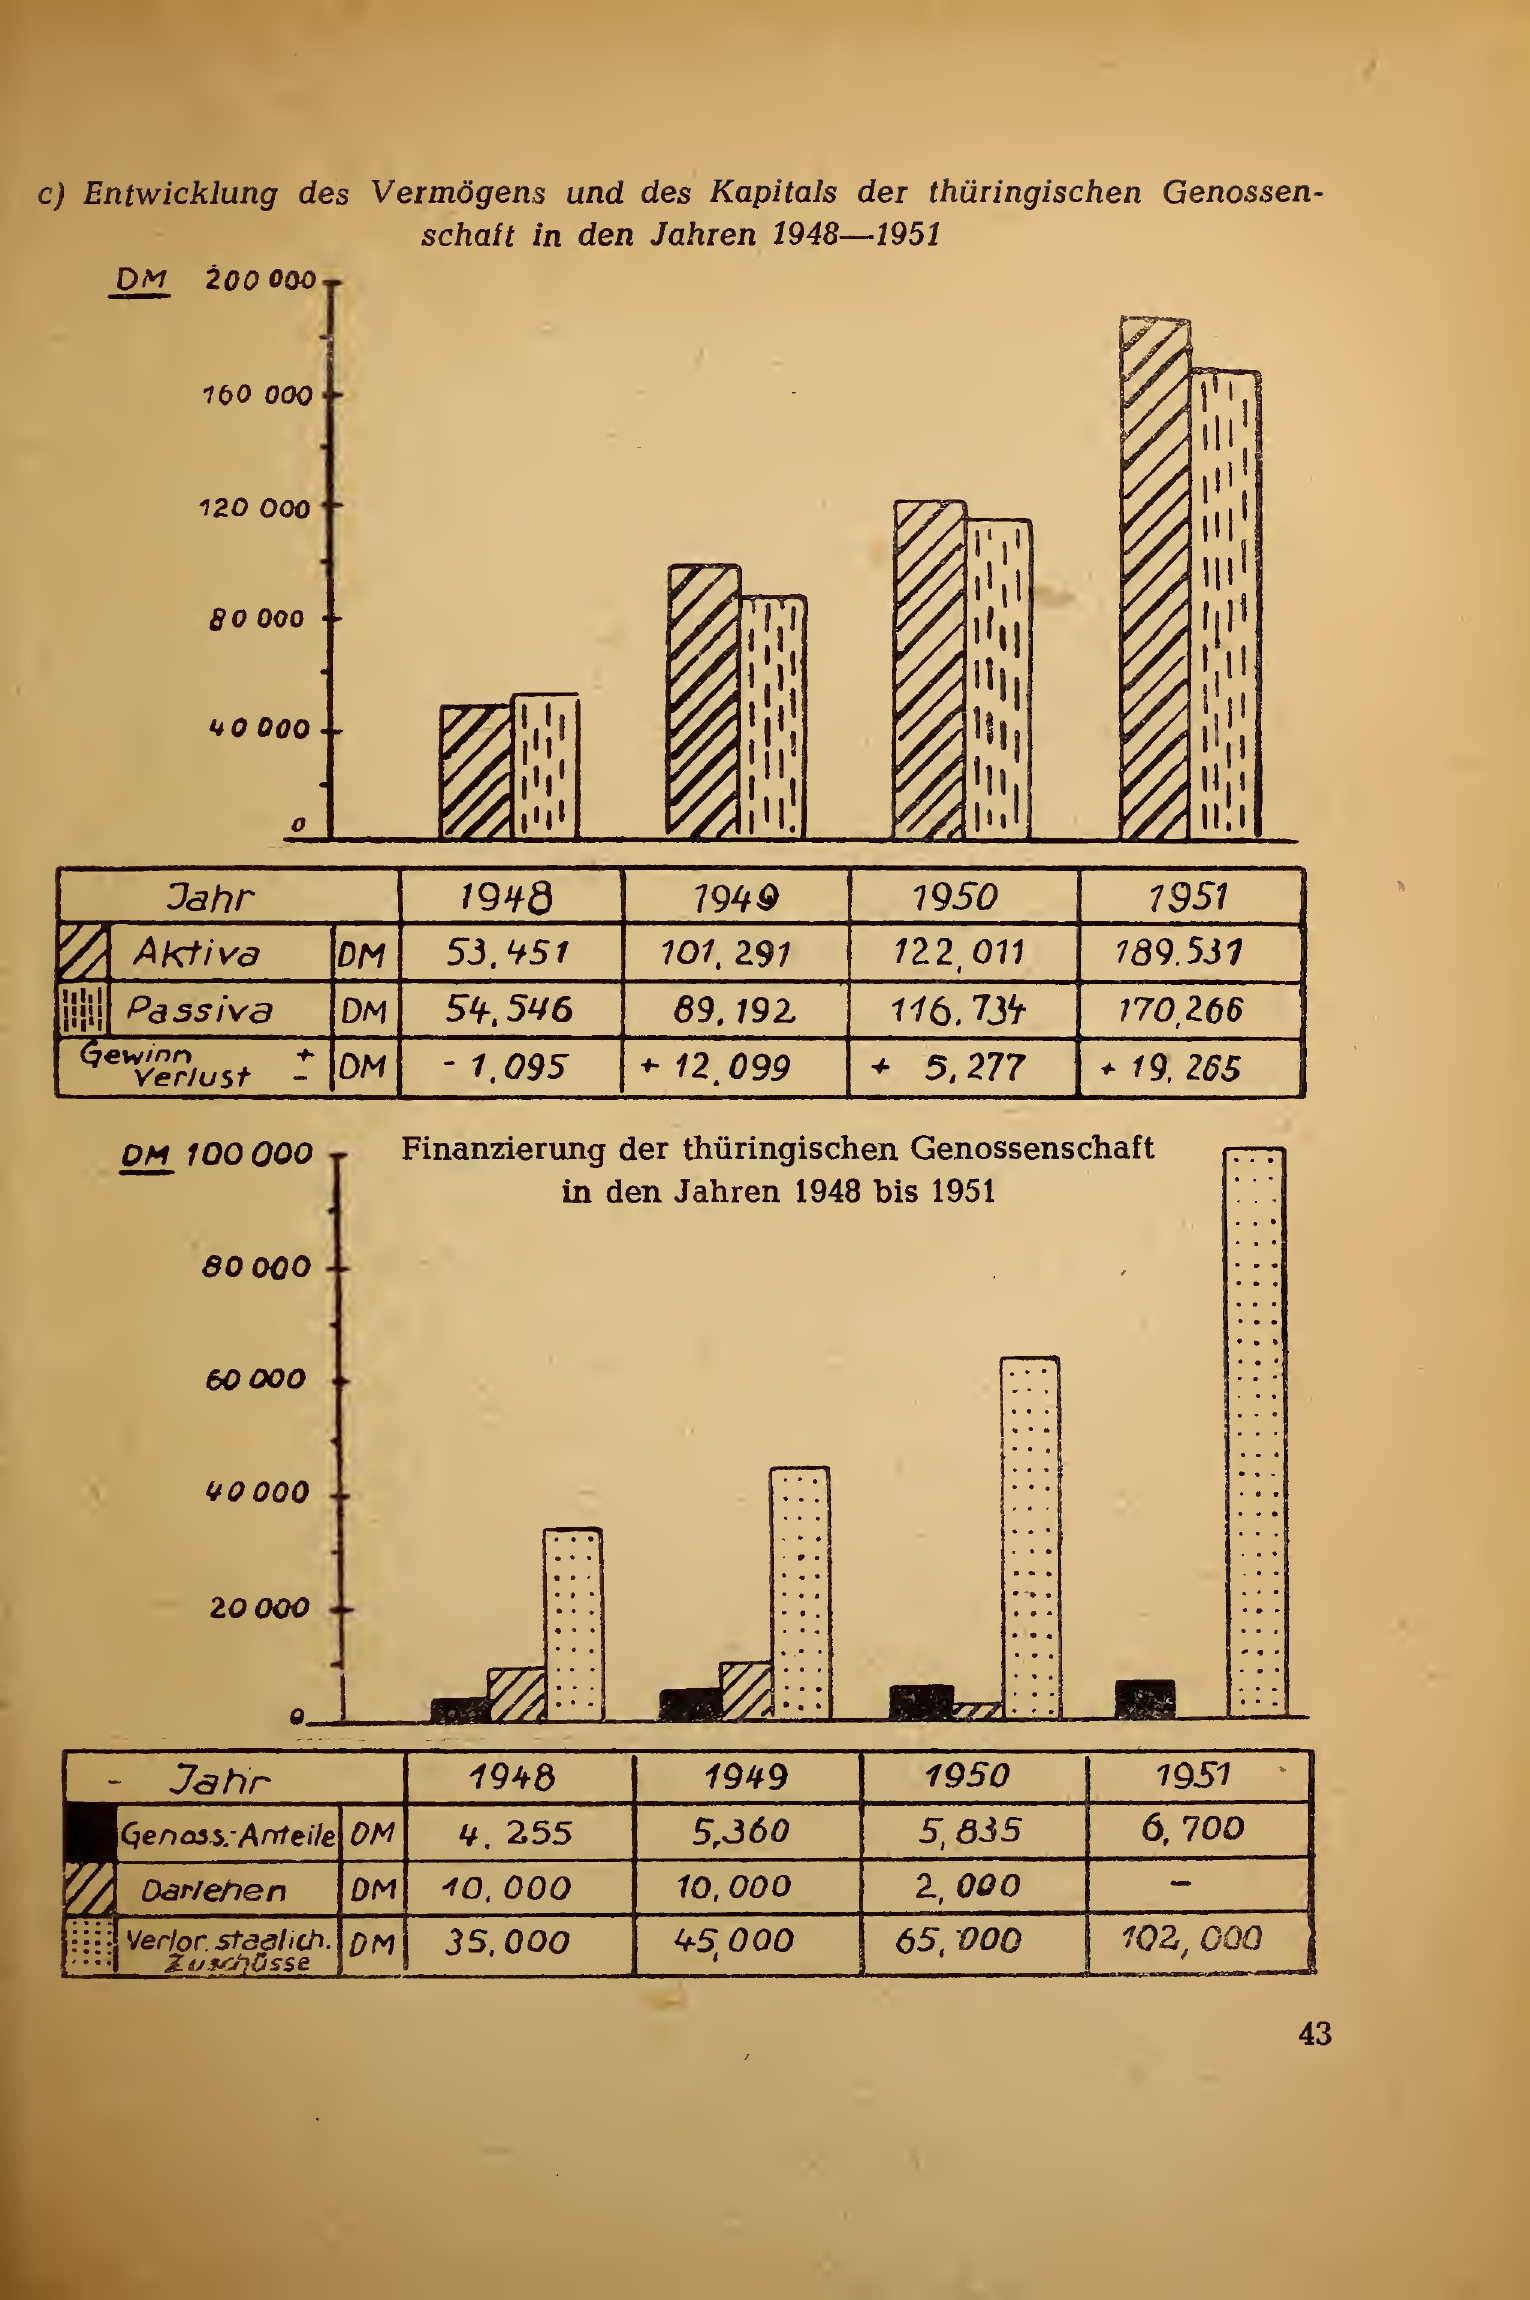 c) Entwicklung des Vermögens und des Kapitals der thüringischen Genossen-
schaft in den Jahren 1948—1951
DM 200 000
160 000
120 000
80 000
40 000
0
Jahr 1948 1949 1950 1951
Aktiva DM 53.451 101,291 122,011 189.531
Passiva DM 54,546 89,192 116.734 170,266
Gewinn + Verlust - DM - 1.095 + 12.099 + 5,277 + 19,265
DM 100 000
Finanzierung der thüringischen Genossenschaft
in den Jahren 1948 bis 1951
80 000
60 000
40 000
20 000
0
- Jahr 1948 1949 1950 1951
Genoss.-Anteile DM 4.255 5,360 5,835 6,700
Darlehen DM 10,000 10,000 2,000 -
Verlor. staalich. Zuschüsse DM 35,000 45,000 65,000 102,000
43